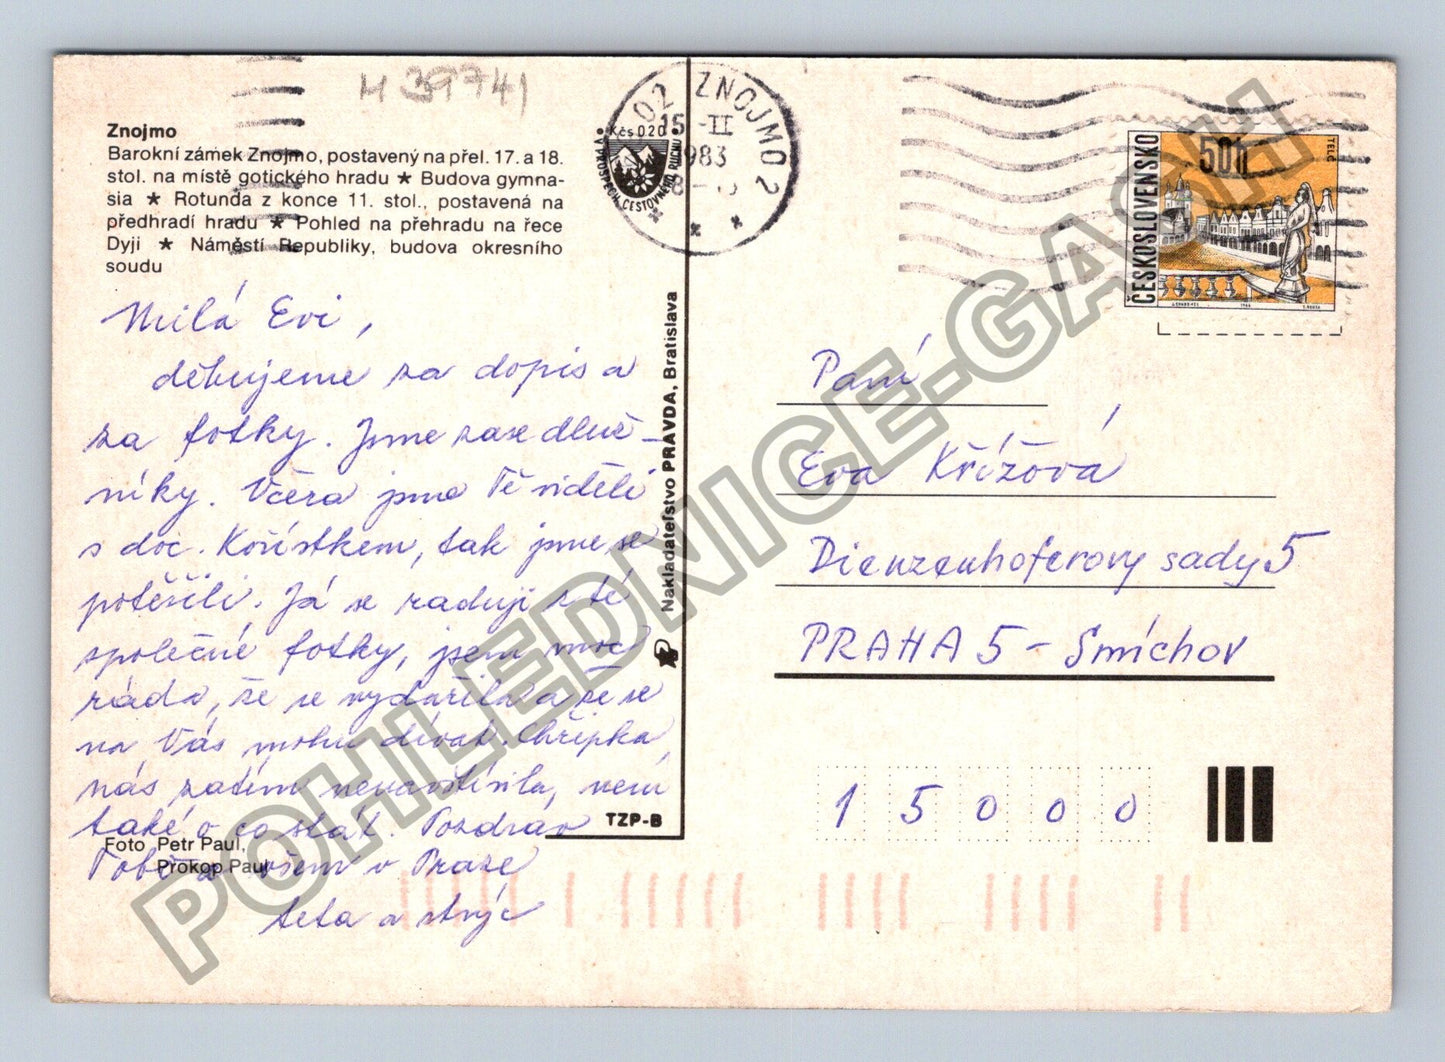 H 39741
Znojmo
Barokní zámek Znojmo, postavený na přel. 17. a 18.
stol. na místě gotického hradu ★ Budova gymna-
sia ★ Rotunda z konce 11. stol., postavená na
předhradí hradu ★ Pohled na přehradu na řece
Dyji ★ Náměstí Republiky, budova okresního
soudu
Milá Evi,
děkujeme za dopis a
za fotky. Jsme zase dluž-
níky. Včera jsme Tě viděli
s doc. Kořístkem, tak jsme se
potěšili. Já se raduji z té
společné fotky, jsem moc
ráda, že se vydařila a že se
na Vás mohu dívat. Chřipka
nás zatím nenavštívila, není
také o co stát. Pozdrav
Tobě a všem v Praze
teta a strýc
Foto Petr Paul,
Prokop Paul
TZP-B
Nakladateľstvo PRAVDA, Bratislava
Kčs 0.20
V PROSPĚCH CESTOVNÉHO RUCHU
02 ZNOJMO 2
15.-II
1983
ČESKOSLOVENSKO
50h
TELČ
1966
Paní
Eva Křížová
Dienzenhoferovy sady 5
PRAHA 5 - Smíchov
15000
POHLEDNICE-GASH